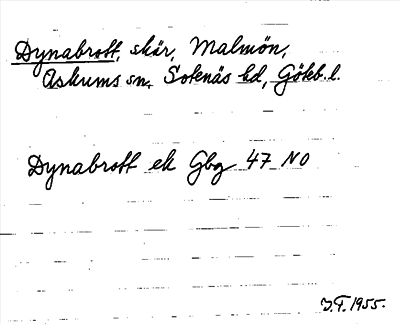 Dynabrott, skär, Malmön,
Askums sn, Sotenäs hd, Göteb. l.
Dynabrott ek Gbg 47 NO
J.F. 1955.